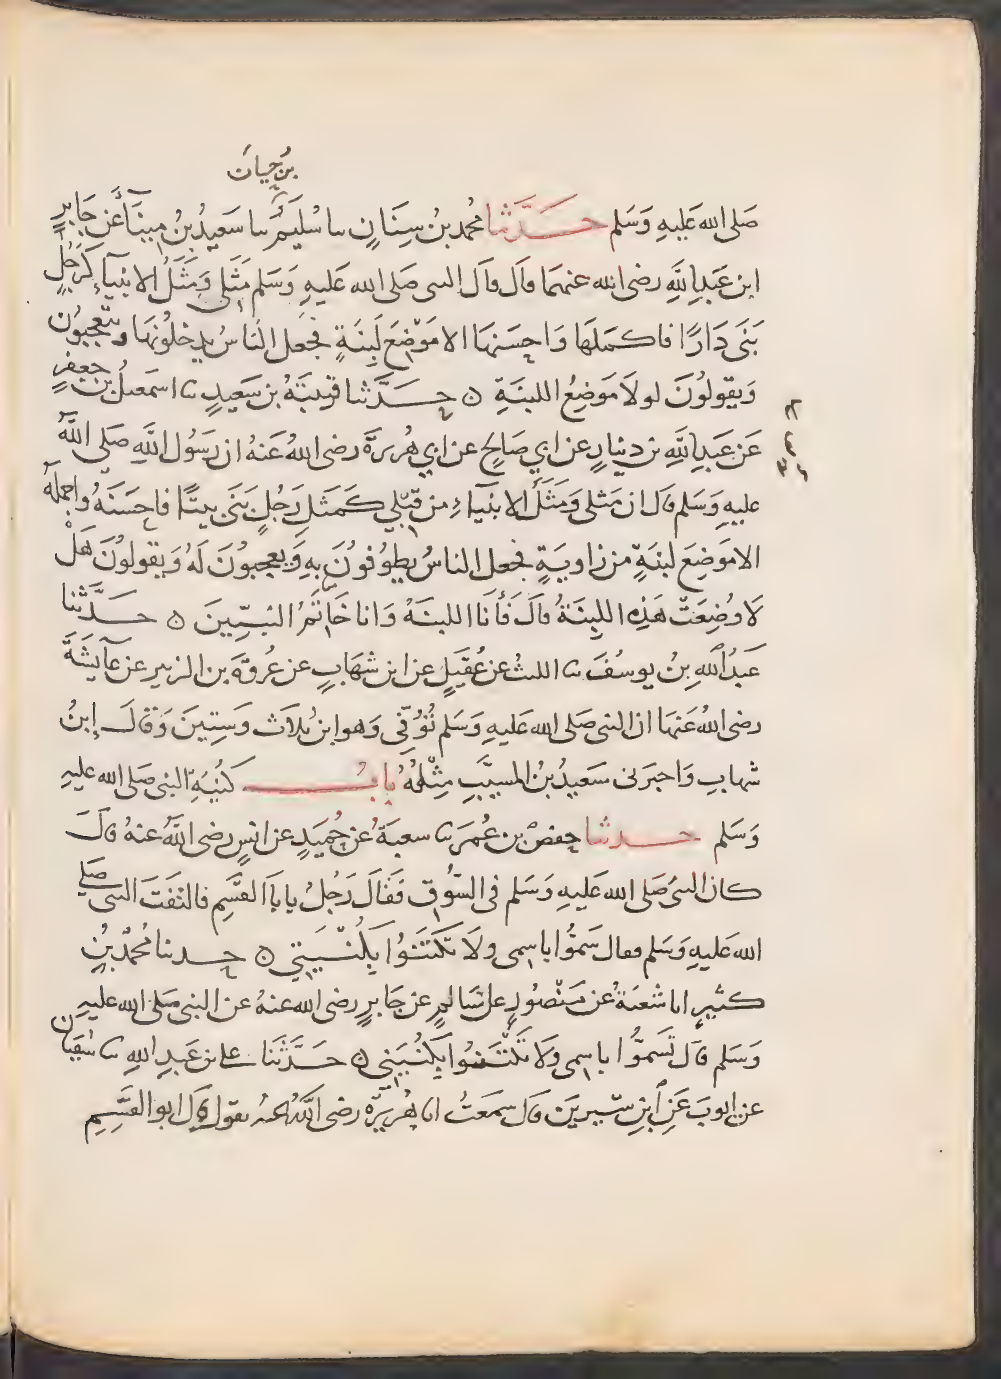 بن حيان
صلى الله عليهِ وَسَلم حَدَّثنا محمد بنُ سِنَانٍ سا سُلَيم سا سَعيدُ بنُ مِينَآءَ عَن جَابِرِ
ابن عَبدِ اللَّهِ رضى الله عنهمَا قاَل قاَل النبى صَلى الله عَليهِ وَسَلم مَثَلى وَمَثَلُ الانبيآءِ كرَجُلٍ
بَنَى دَارًا فاكمَلَهَا وَاحِسَنهَا الا مَوْضِعَ لَبِنَةٍ فجعل النَاسُ يَدخلُونهَا ويتعجبُون
وَيقولُونَ لولاَ مَوَضِعُ اللبنَةِ ه حَدَّثنا قتيبَةُ بن سَعيدٍ سا اسمعيلُ بن جعفرٍ
عَن عَبدِ اللَّهِ بن دينارٍ عن ابي صَالحٍ عن ابي هُريرَةَ رضى اللهُ عَنهُ ان رَسُول اللَّهِ صَلى اللهُ
عليهِ وَسَلم قاَل ان مَثلى وَمَثَلَ الانبيَاءِ من قَبْلي كَمَثَلِ رَجُلٍ بَنَى بيتًا فاحسَنَهُ واجملَهُ
الا مَوضِعَ لَبنَةٍ من زاويَةٍ فجعل الناسُ يطوُفونَ بهِ وَيعجبوُنَ لَهُ وَيقولوُنَ هَلْ
لاَ وُضِعَتْ هَذِهِ اللبِنَةُ قالَ فَأنَا اللبنَةُ وَانا خَاتمُ النبيّينَ ه حَدَّثنا
عَبدُ اللَّهِ بنُ يوسُفَ سا الليث عن عُقَيلٍ عن ابن شهَابٍ عن عُروَةَ بن الزبير عن عآيشَةَ
رضى اللهُ عَنهَا ان النبى صَلى الله عَليهِ وَسَلم تُوُفّى وَهو ابن ثلاَث وَستينَ وَقالَ ابنُ
شهابٍ وَاخبرَنى سَعيدُ بنُ المسيَّبِ مِثْلهُ بابُ كنُيَةِ النبى صَلى الله عليهِ
وَسَلم حدثنا حفصُ بن عُمرَ سا شعبَةُ عن حُمَيدٍ عن انسٍ رضى اللَّهُ عنهُ قالَ
كان النبىُ صَلى الله عَليهِ وَسَلم فى السّوُقِ فقَالَ رَجُلٌ يا باَ القسِمِ فالتَفَتَ النبى صَلى
الله عَليهِ وَسَلم فقال سَمّوُا باسِمى ولاَ تَكَتَنوُا بِكُنْيَتي ه حدثنا محمدُ بنُ
كثيرٍ انا شعبَةُ عن مَنْصُورٍ عن سَالمٍ عن جَابرٍ رضى الله عنهُ عن النبى صَلى الله عليهِ
وَسَلم قاَل تَسموُّا باسِمى ولاَ تَكْتَنوُا بكُنْيَتي ه حَدَّثَنا على بن عَبدِ اللهِ سا سُفيَان
عن ايوبَ عَنِ ابنِ سيرينَ قاَل سمعَتُ ابا هُريرَةَ رضى اللَّهُ عنهُ يقول قاَل ابو القسِمِ